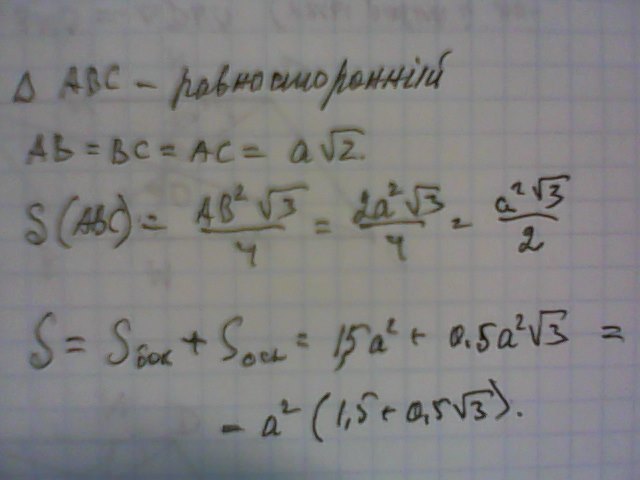 Δ ABC - равносторонній
AB = BC = AC = a√2.
S(ABC) = AB²√3/4 = 2a²√3/4 = a²√3/2
S = Sбок + Sосн = 1,5a² + 0.5a²√3 =
= a² (1,5 + 0,5√3).